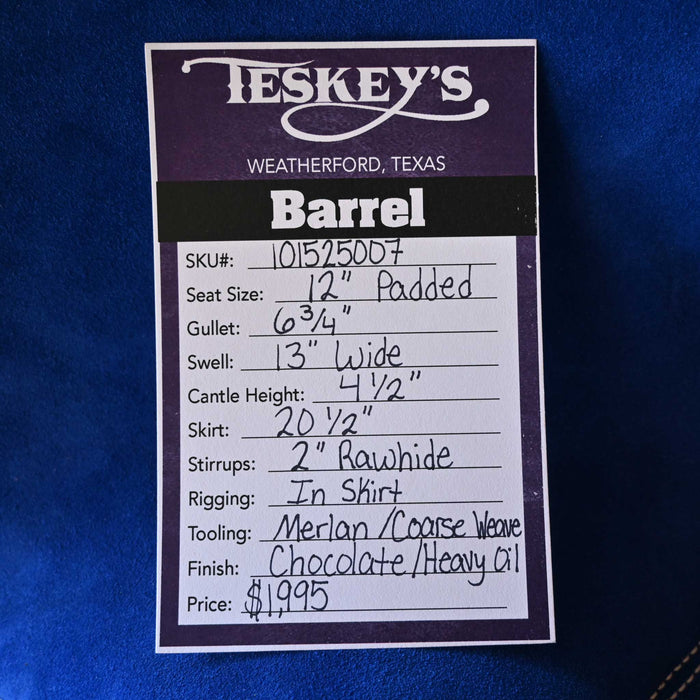 TESKEY'S
WEATHERFORD, TEXAS
Barrel
SKU#: 101525007
Seat Size: 12" Padded
Gullet: 6 3/4"
Swell: 13" Wide
Cantle Height: 4 1/2"
Skirt: 20 1/2"
Stirrups: 2" Rawhide
Rigging: In Skirt
Tooling: Merlan/Coarse Weave
Finish: Chocolate/Heavy Oil
Price: $1,995